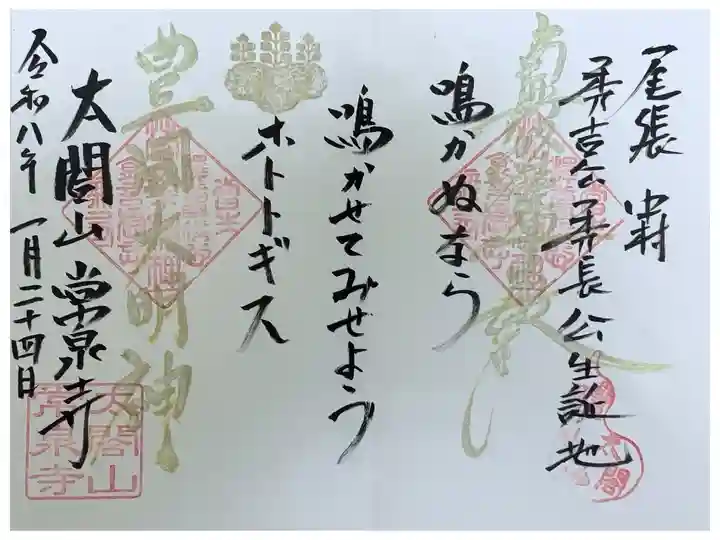 尾張 中村
秀吉公 秀長公 生誕地
南無妙法蓮華経
鳴かぬなら
鳴かせてみせよう
ホトトギス
豊国大明神
太閤山 常泉寺
令和八年 一月二十四日
太閤山
常泉寺
太閤